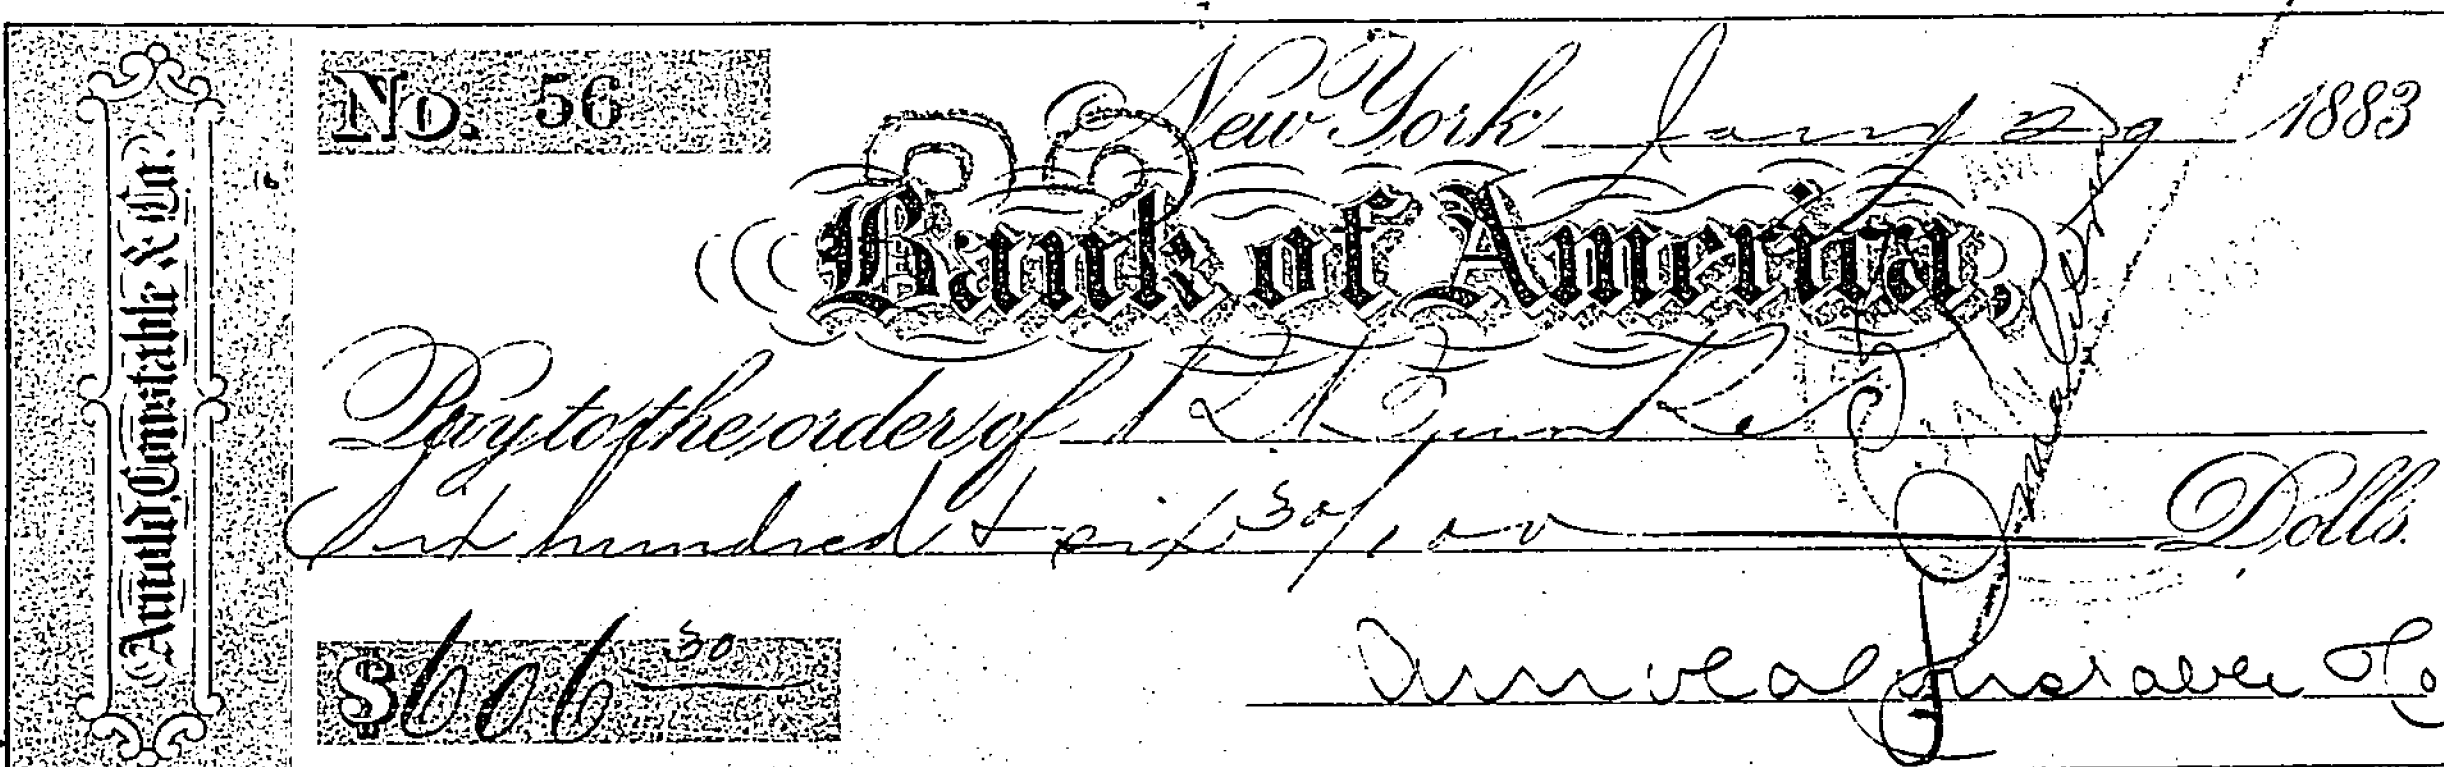 Arnold, Constable & Co.
No. 56
New York Jany 29 1883
Bank of America,
Pay to the order of
Six hundred & six 30/100 Dolls.
$606 30
Arnold Constable & Co